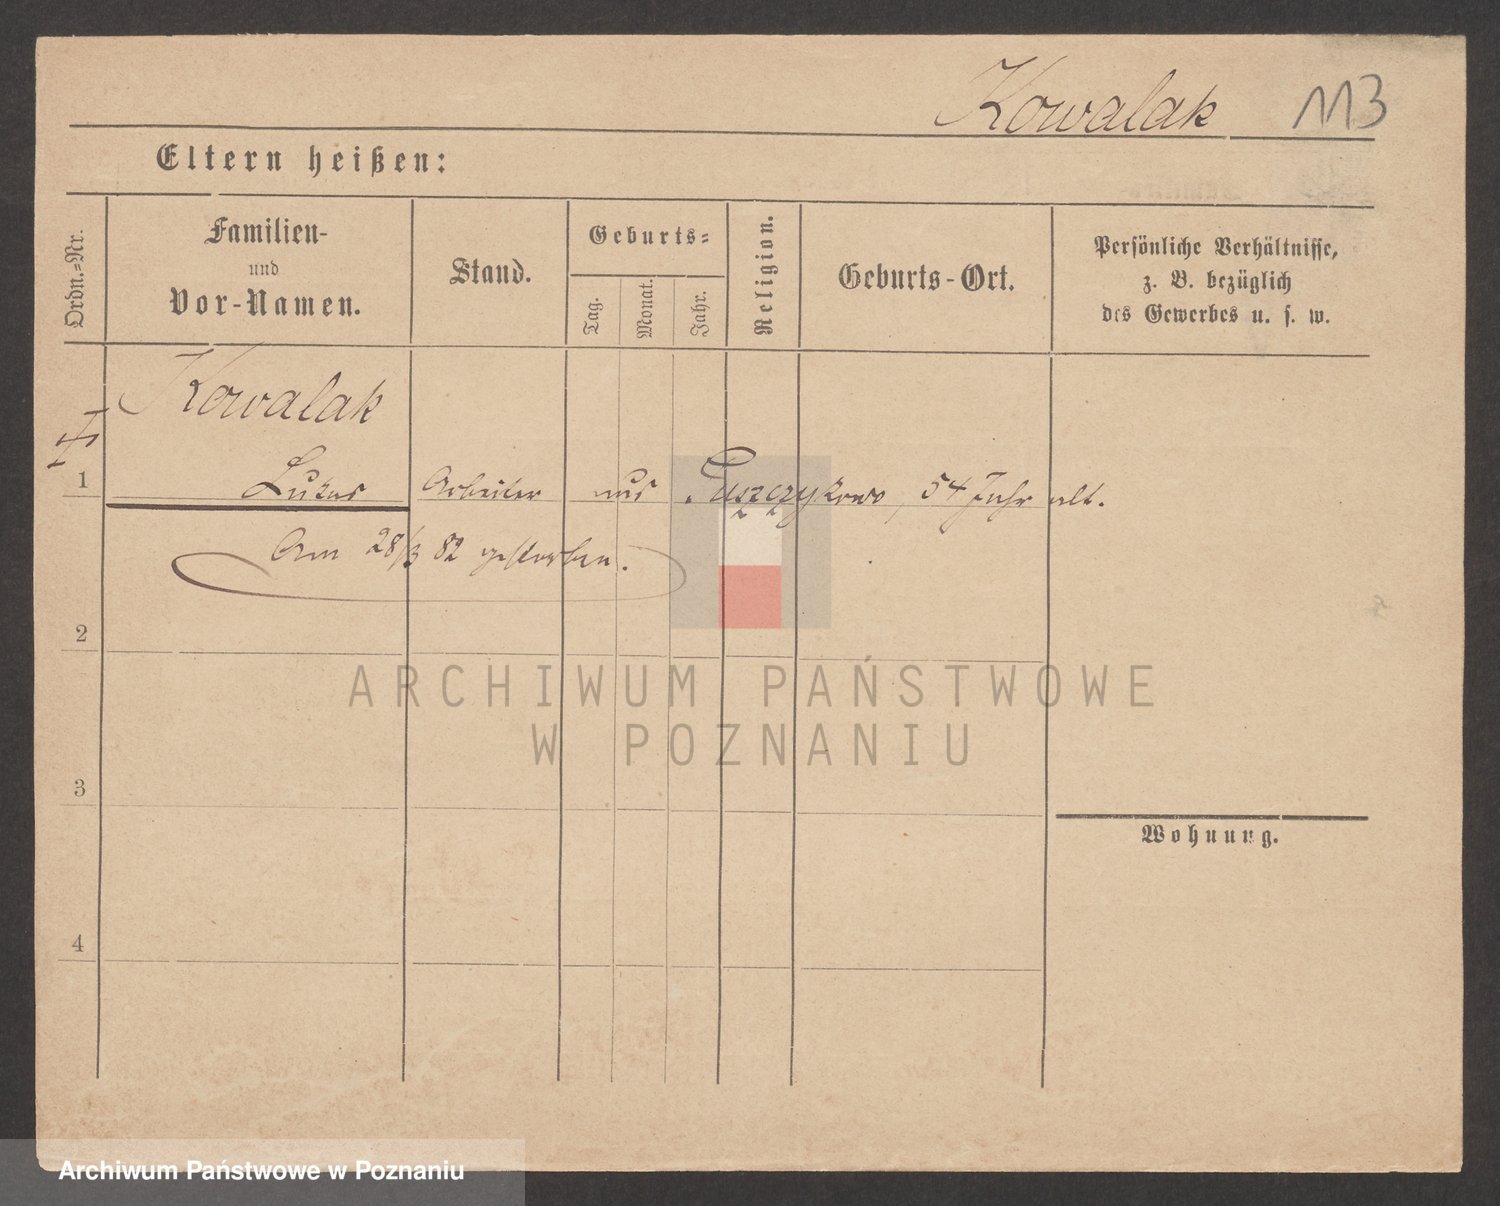 Kowalak 113
Eltern heißen:
Ordn.-Nr.
Familien-
und
Vor-Namen.
Stand.
Geburts-
Tag.
Monat.
Jahr.
Religion.
Geburts-Ort.
Persönliche Verhältnisse,
z. B. bezüglich
des Gewerbes u. s. w.
Kowalak
1 Lukas Arbeiter aus Puszczykowo, 54 Jahr alt.
Am 28/3 82 gestorben.
2
ARCHIWUM PAŃSTWOWE
W POZNANIU
3
Wohnung.
4
Archiwum Państwowe w Poznaniu